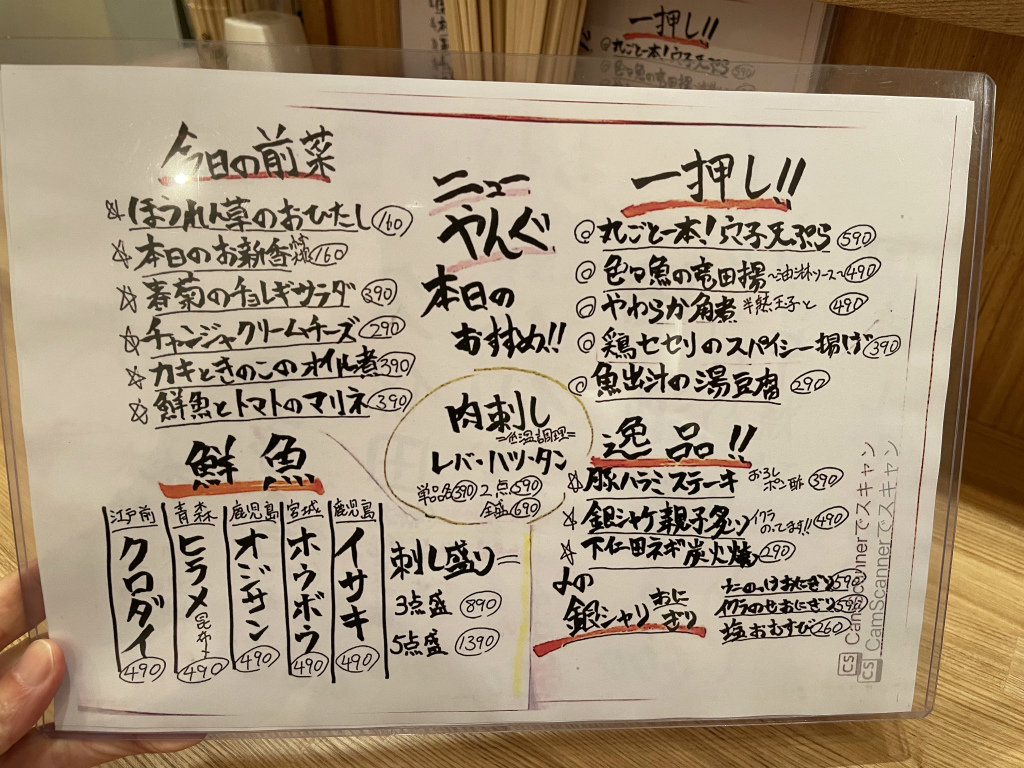 今日の前菜
ほうれん草のおひたし 160
本日のお新香 160
春菊のチョレギサラダ 390
チャンジャクリームチーズ 290
カキときのこのオイル煮 390
鮮魚とトマトのマリネ 390
鮮魚
江戸前 クロダイ 490
青森 ヒラメ昆布〆 490
鹿児島 オジサン 490
宮城 ホウボウ 490
鹿児島 イサキ 490
刺し盛り
3点盛 890
5点盛 1390
ニュー
やんぐ
本日の
おすすめ!!
肉刺し
=低温調理=
レバ・ハツ・タン
単品各390 2点590
全盛690
一押し!!
丸ごと一本!穴子天ぷら 590
色々魚の竜田揚〜油淋ソース〜 490
やわらか角煮 半熟玉子と 490
鶏セセリのスパイシー揚げ 390
魚出汁の湯豆腐 290
逸品!!
豚ハラミステーキ おろしポン酢 390
銀シャケ親子多ッ イクラのってます!! 490
下仁田ネギ炭火焼 290
〆の
銀シャリおにぎり
たこのっけおにぎり 590
イクラのせおにぎり 590
塩おむすび 260
CS CamScannerでスキャン
CS CamScannerでスキャン
一押し!!
丸ごと一本!穴子天ぷら 590
色々魚の竜田揚